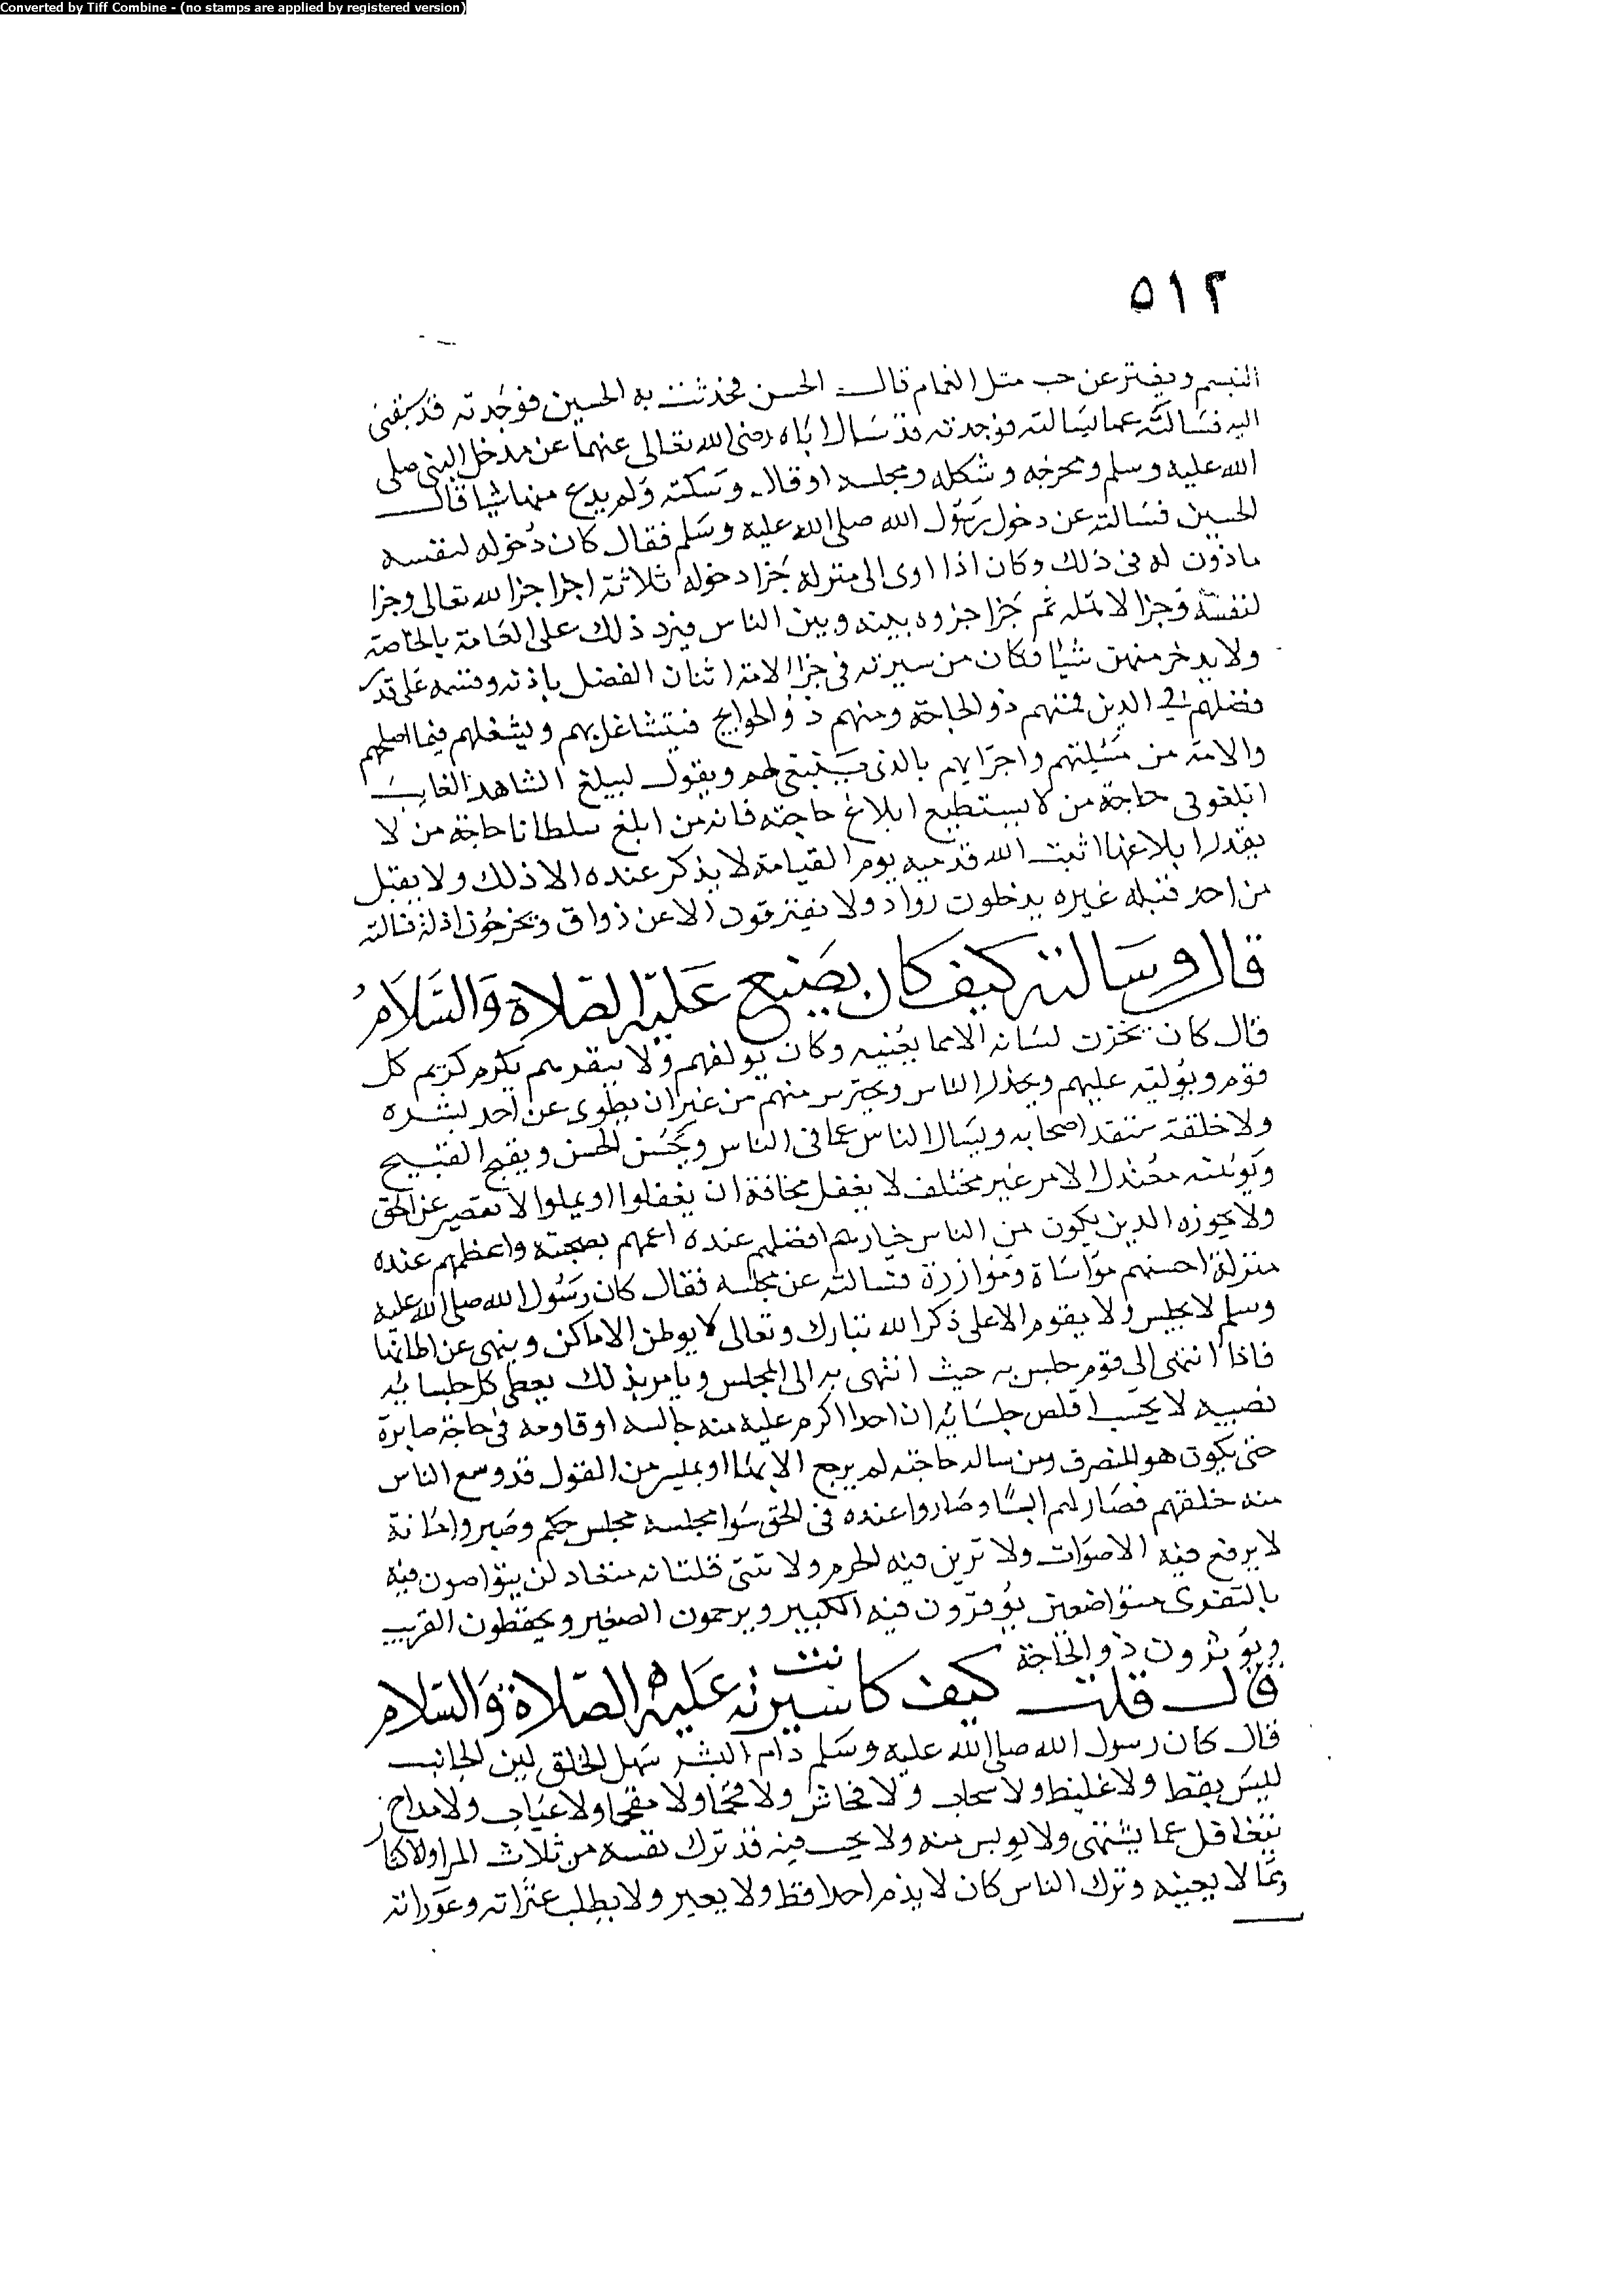 Converted by Tiff Combine - (no stamps are applied by registered version)
٥١٢
التبسم ويفتر عن حب مثل الغمام قال الحسن فحدثت به الحسين فوجدته قد سبقنى
اليه فسالته عما سالته فوجدته قد سال اباه رضى الله تعالى عنهما عن مدخل النبى صلى
الله عليه وسلم ومخرجه وشكله ومجلسه او قال وسكته ولم يدع منها شيا قال
الحسين فسالته عن دخول رسول الله صلى الله عليه وسلم فقال كان دخوله لنفسه
ماذون له فى ذلك وكان اذا اوى الى منزله جزا دخوله ثلاثة اجزا جزا لله تعالى وجزا
لنفسه وجزا لاهله ثم جزا جزوه بينه وبين الناس فيرد ذلك على العامة بالخاصة
ولا يدخر منهن شيا فكان من سيرته فى جزا الامة اثنان الفضل باذنه وقسمه على قدر
فضلهم فى الدين فمنهم ذو الحاجة ومنهم ذو الحوايج فيتشاغل بهم ويشغلهم فيما اصلحهم
والامة من مسيلتهم واجزايهم بالذى ينبغى لهم ويقول ليبلغ الشاهد الغايب
ابلغونى حاجة من لا يستطيع ابلاغ حاجته فانه من ابلغ سلطانا حاجة من لا
يقدر ابلاغها اثبت الله قدميه يوم القيامة لا يذكر عنده الا ذلك ولا يقبل
من احد قبله غيره يدخلون رواد ولا يفترقون الا عن ذواق ويخرجون اذلة فسالته
قال وسالته كيف كان يصنع عليه الصلاة والسلام
قال كان يخزن لسانه الا مما يعنيه وكان يولفهم ولا ينفرهم يكرم كريم كل
قوم ويوليه عليهم ويحذر الناس ويحترس منهم من غير ان يطوى عن احد بشره
ولا خلقه يتفقد اصحابه ويسال الناس عما فى الناس ويحسن الحسن ويقبح القبيح
ويوهنه معتدل الامر غير مختلف لا يغفل مخافة ان يغفلوا او يملوا لا يقصير عن الحق
ولا يجوزه الذين يكون من الناس خيارهم افضلهم عنده اعمهم نصيحة واعظمهم عنده
منزلة احسنهم مواساة وموازرة فسالته عن مجلسه فقال كان رسول الله صلى الله عليه
وسلم لا يجلس ولا يقوم الا على ذكر الله تبارك وتعالى لا يوطن الاماكن وينهى عن ايطانها
فاذا انتهى الى قوم جلس به حيث انتهى به الى المجلس ويامر بذلك يعطى كل جلسايه
نصيبه لا يحسب جلسايه ان احدا اكرم عليه منه جالسه او قاومه فى حاجة صابرة
حتى يكون هو المنصرف ومن ساله حاجته لم يرجع الا بها او بميسر من القول قد وسع الناس
منه خلقهم فصار لهم ابا وصاروا عنده فى الحق سوا مجلسه مجلس حكم وصبر وامانة
لا يرفع فيه الاصوات ولا فيه الحرم ولا تنثى فلتاته يتواصون فيه
بالتقوى متواضعين يوقرون فيه الكبير ويرحمون الصغير ويحفظون القريب
ويوثرون ذو الحاجة
قال قلت كيف كانت سيرته عليه الصلاة والسلام
قال كان رسول الله صلى الله عليه وسلم دام البشر سهل الخلق لين الجانب
ليس بفظ ولا غليظ ولا سحاب ولا فحاش ولا ولا عياب ولا مداح
يتغافل عما يشتهى ولا يوبس منه ولا يجب فيه قد ترك نفسه من ثلاث المرا والاكثار
ومما لا يعنيه وترك الناس كان لا يذم احدا قط ولا يعير ولا يطلب عثراته وعوراته